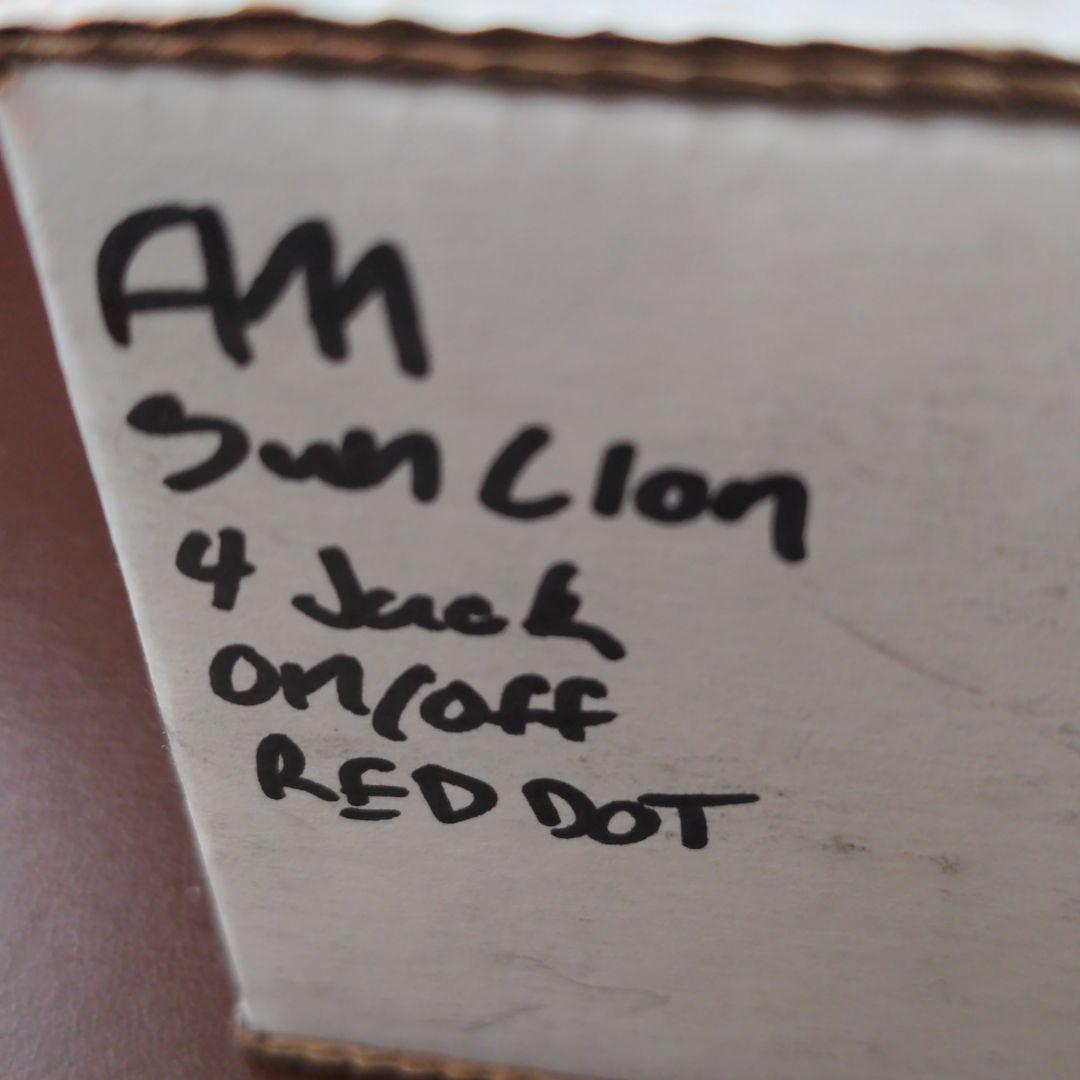 AM
Sun Lion
4 Jack
On/Off
RED DOT